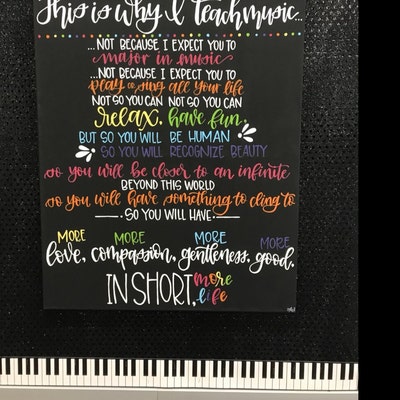 This is why I teach music...
...NOT BECAUSE I EXPECT YOU TO
major in music
...NOT BECAUSE I EXPECT YOU TO
play or sing all your life
NOT SO YOU CAN NOT SO YOU CAN
relax. have fun.
BUT SO YOU WILL BE HUMAN
SO YOU WILL RECOGNIZE BEAUTY
so you will be closer to an infinite
BEYOND THIS WORLD
so you will have something to cling to
SO YOU WILL HAVE
MORE MORE MORE MORE
love, compassion, gentleness, good,
IN SHORT, more
life